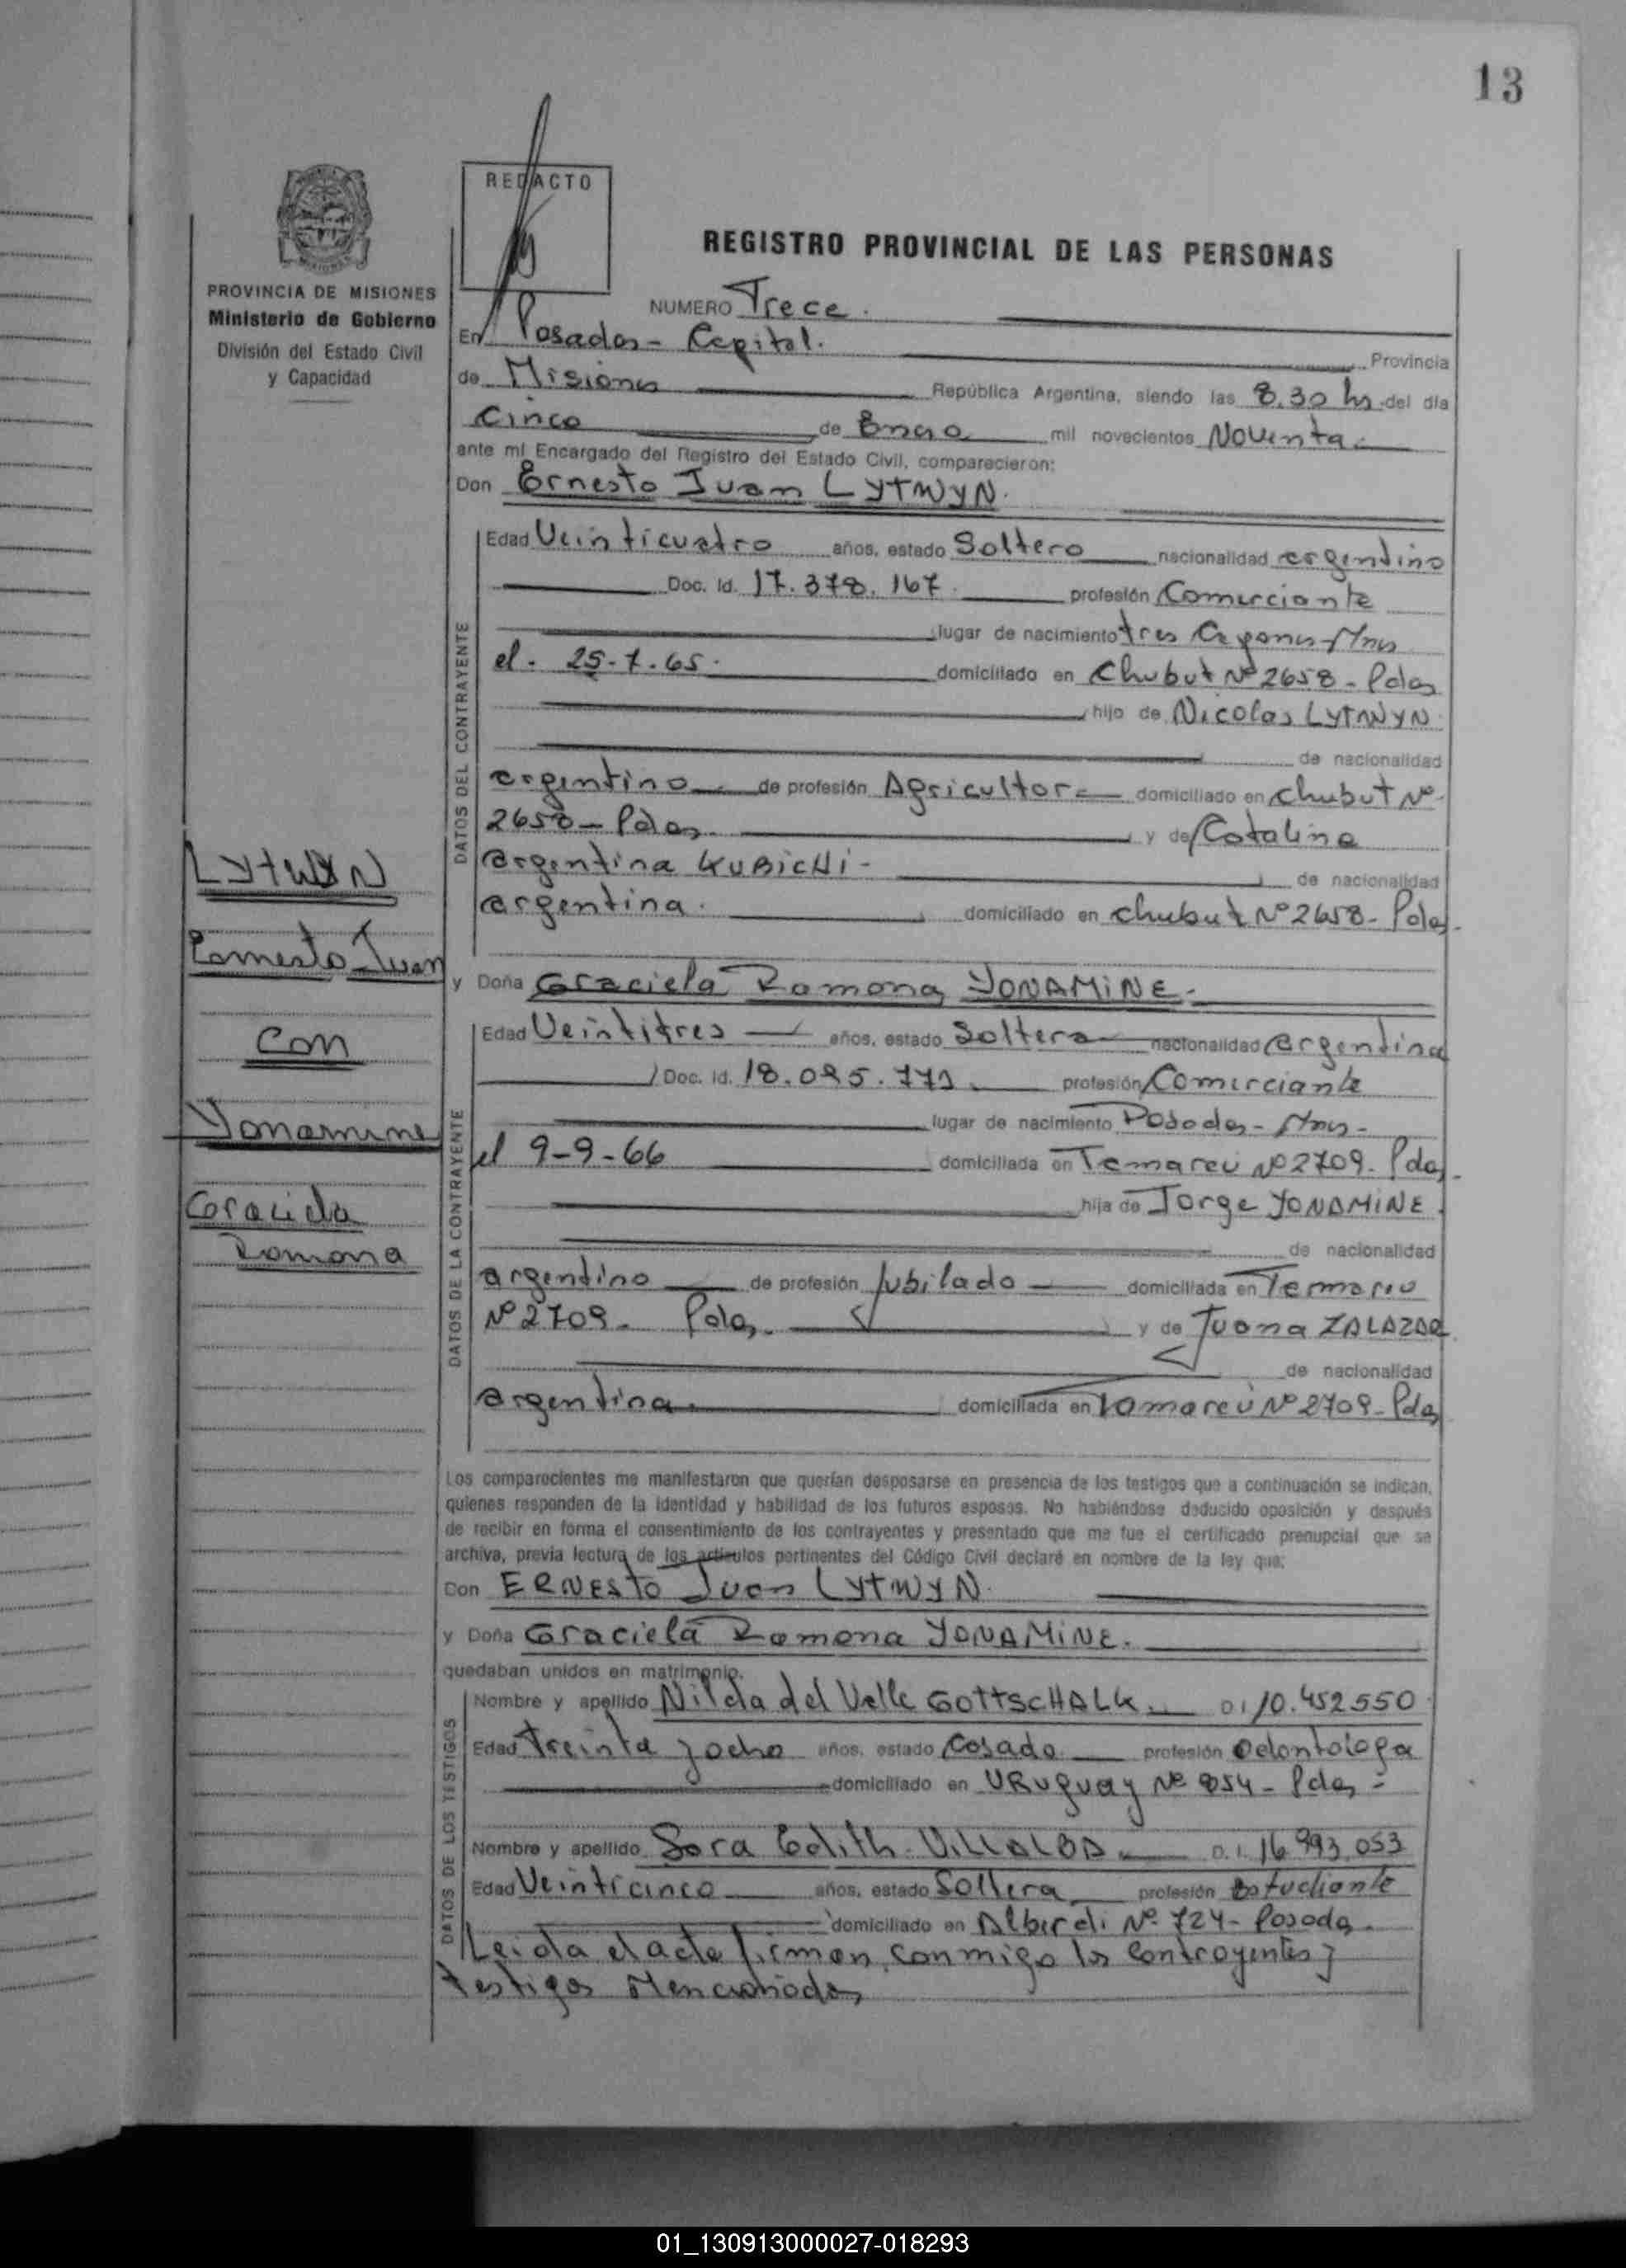 13
REDACTO
PROVINCIA DE MISIONES
Ministerio de Gobierno
División del Estado Civil
y Capacidad
LYTWYN
Ernesto Juan
Con
Yonamine
Graciela
Ramona
REGISTRO PROVINCIAL DE LAS PERSONAS
NUMERO Trece.
En Posadas - Capital. Provincia
de Misiones República Argentina, siendo las 8.30 hs. del día
Cinco de Enero mil novecientos Noventa.
ante mi Encargado del Registro del Estado Civil, comparecieron:
Don Ernesto Juan LYTWYN.
DATOS DEL CONTRAYENTE
Edad Veinticuatro años, estado Soltero nacionalidad argentino
Doc. Id. 17.378.167. profesión Comerciante
lugar de nacimiento tres Capones - Mnes
el. domiciliado en Chubut Nº 2658 - Pdas
hijo de Nicolas LYTWYN.
de nacionalidad
argentino de profesión Agricultor domiciliado en Chubut Nº
2658 - Pdas. y de Catalina
argentina KUBICHI - de nacionalidad
argentina. domiciliado en chubut Nº 2658 - Pdas.
y Doña Graciela Ramona YONAMINE.
DATOS DE LA CONTRAYENTE
Edad Veintitres años, estado Soltera nacionalidad argentina
Doc. Id. profesión Comerciante
lugar de nacimiento Posadas - Mnes -
el 9-9-66 domiciliada en Nº 2709. Pdas.
hija de Jorge YONAMINE.
de nacionalidad
argentino de profesión Jubilado domiciliada en
Nº 2709. Pdas. y de Juana ZALAZAR
de nacionalidad
argentina. domiciliada en Nº 2709 - Pdas
Los comparecientes me manifestaron que querían desposarse en presencia de los testigos que a continuación se indican,
quienes responden de la identidad y habilidad de los futuros esposos. No habiéndose deducido oposición y después
de recibir en forma el consentimiento de los contrayentes y presentado que me fue el certificado prenupcial que se
archiva, previa lectura de los artículos pertinentes del Código Civil declaré en nombre de la ley que:
Don ERNESTO Juan LYTWYN.
y Doña Graciela Ramona YONAMINE.
quedaban unidos en matrimonio.
DATOS DE LOS TESTIGOS
Nombre y apellido Nilda del Valle GOTTSCHALK. D.I. 10.452.550
Edad Treinta y ocho años, estado Casada profesión Odontologa
domiciliado en URuguay Nº - Pdas -
Nombre y apellido Sara Edith VILLALBA D.I. 16.993.053
Edad Veinticinco años, estado Soltera profesión Estudiante
domiciliado en Alberdi Nº 724 - Posadas.
Leida el acta firman conmigo los Contrayentes y
testigos Mencionados
01_130913000027-018293